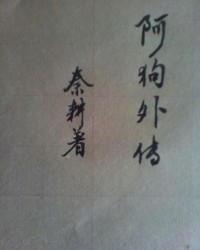 阿狗外传
秦耕著